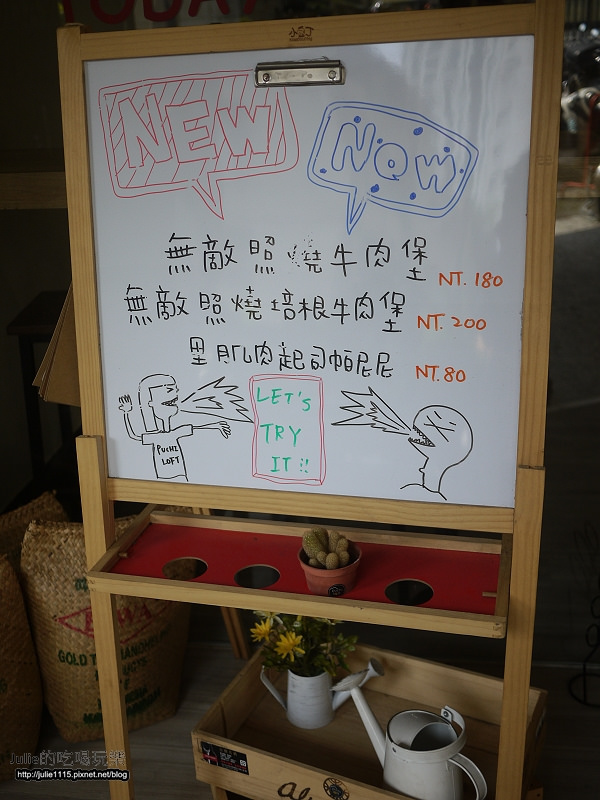 TODAY
小黑丁
NEW
NOW
無敵照燒牛肉堡 NT. 180
無敵照燒培根牛肉堡 NT. 200
里肌肉起司帕尼尼 NT. 80
LET'S
TRY
IT !!
PUCHI
LOFT
GOLD
Julie的吃喝玩樂
http://julie1115.pixnet.net/blog